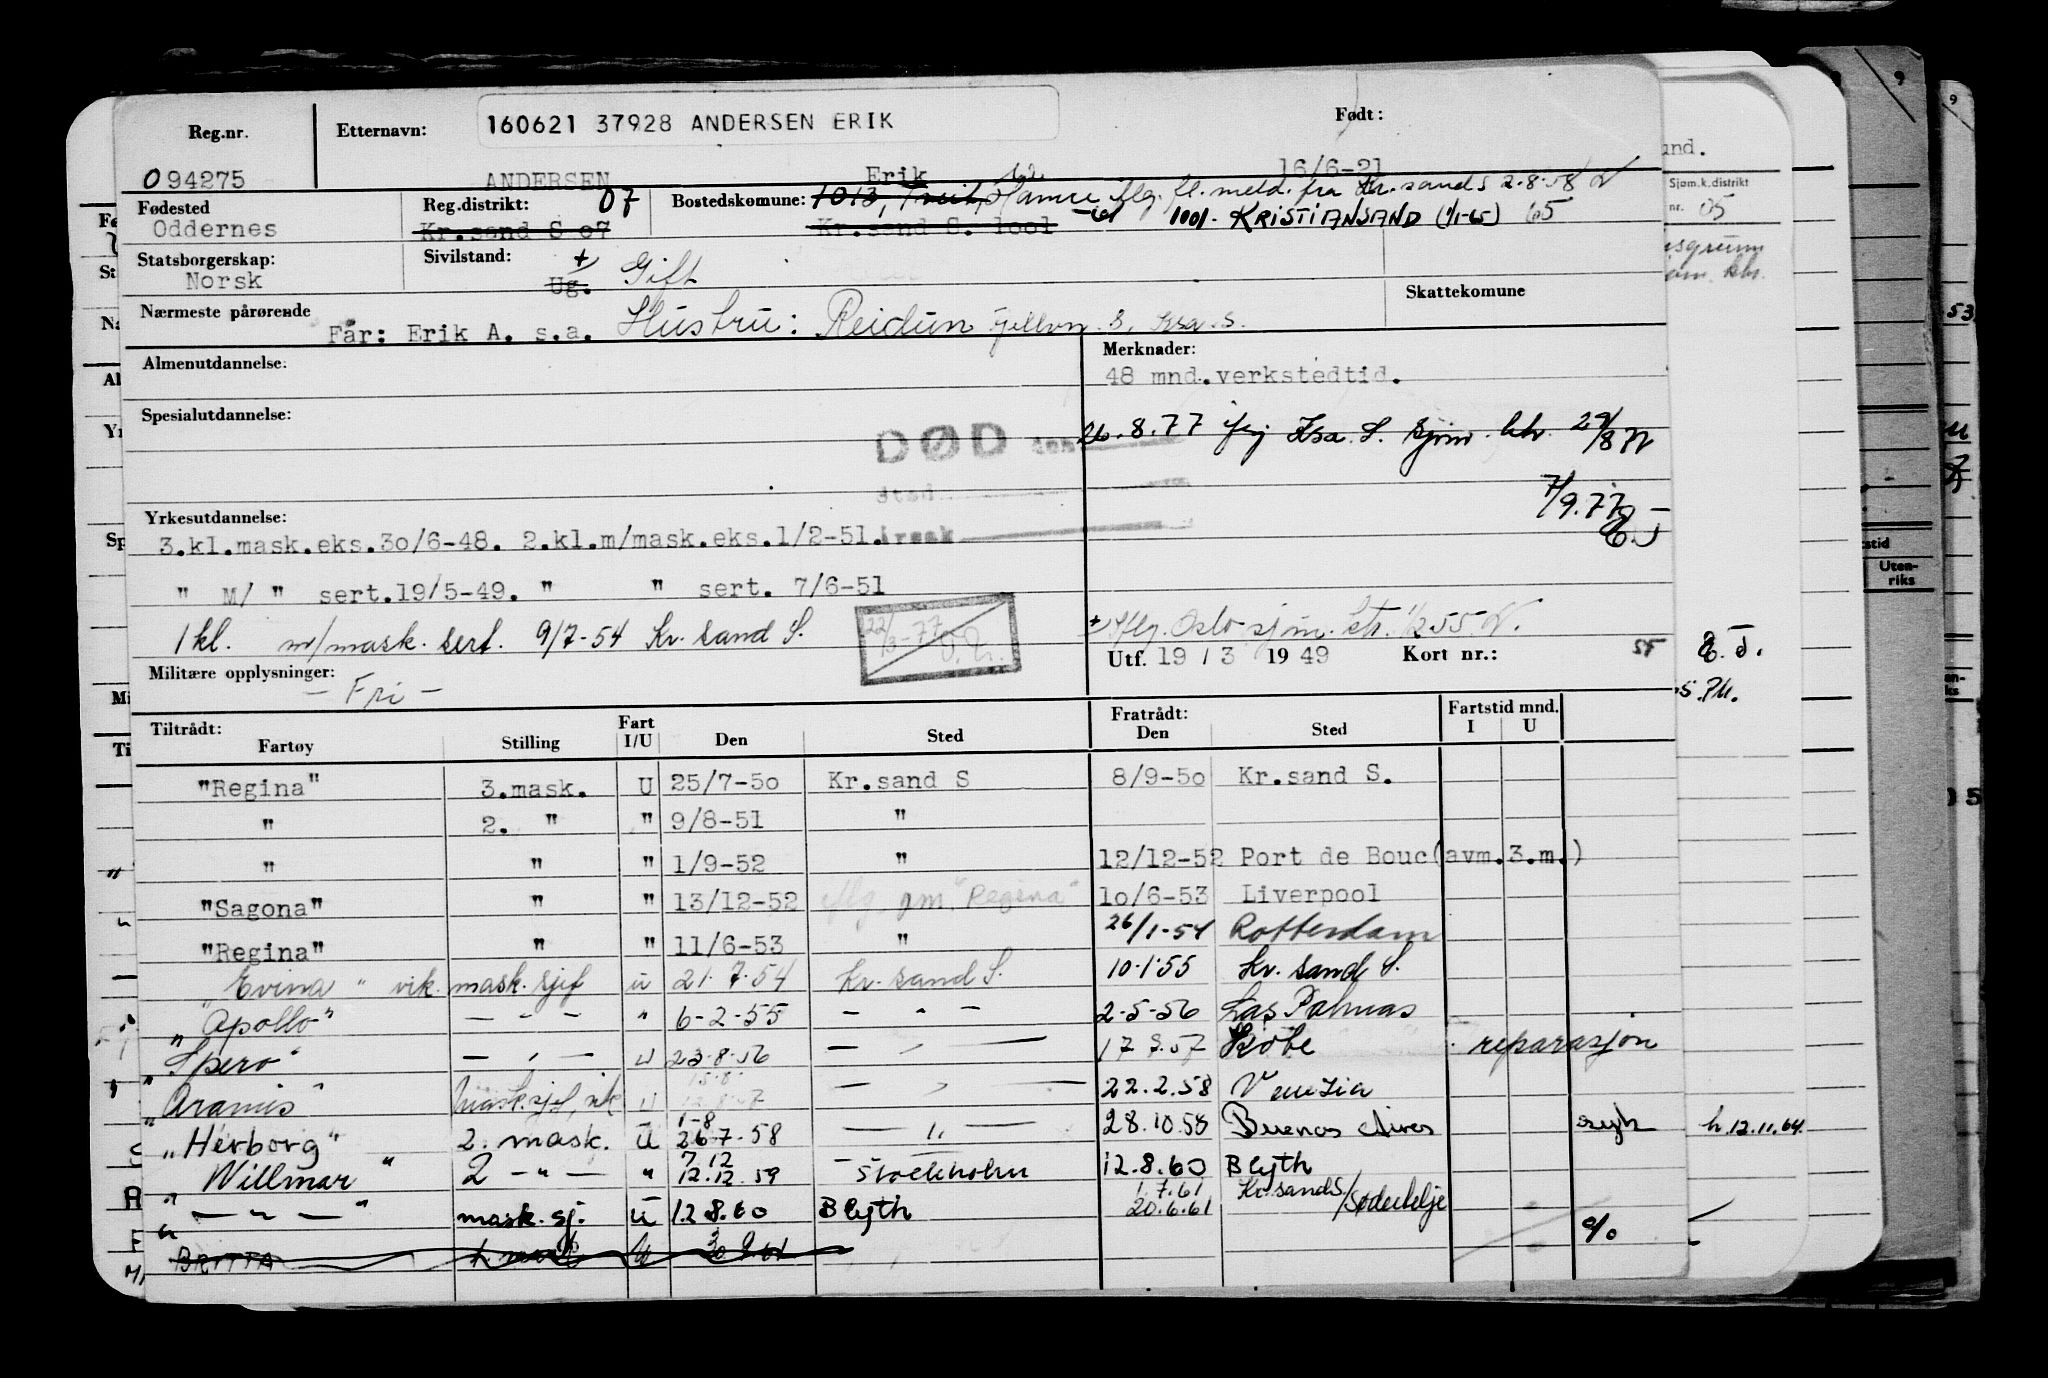 Reg.nr. Etternavn: 160621 37928 ANDERSEN ERIK Født:
094275 ANDERSEN Erik 16/6-21
Fødested Reg.distrikt: 07 Bostedskomune: 1013, Hamre iflg. fl. meld. fra Kr.sand S 2.8.58
Oddernes Kr.sand S 07 Kr.sand S. 1001 1001 - KRISTIANSAND (1/1-65) 65
Statsborgerskap: Sivilstand:
Norsk Ug. + Gift
Nærmeste pårørende Skattekomune
Far: Erik A. s.a. Hustru: Reidun
Almenutdannelse: Merknader:
48 mnd.verkstedtid.
Spesialutdannelse:
DØD den 26.8.77 iflg Krsa. S. sjøm. ktr. 29/8 77
sted
7/9.77
Yrkesutdannelse:
3.kl.mask.eks.30/6-48. 2.kl.m/mask.eks.1/2-51. årsak
" M/ " sert.19/5-49. " " sert. 7/6-51
1 kl. m/mask. sert. 9/7-54 Kr. sand S.
22/3-77
+ iflg. Oslo sjøm. ktr. 1/2 55
Utf. 19 / 3 1949 Kort nr.:
Militære opplysninger:
- Fri -
Tiltrådt: Fart Fratrådt: Fartstid mnd.
Fartøy Stilling I/U Den Sted Den Sted I U
"Regina" 3.mask. U 25/7-50 Kr.sand S 8/9-50 Kr.sand S.
" 2. " " 9/8-51 "
" " " 1/9-52 " 12/12-52 Port de Bouc(avm.3.m.)
"Sagona" " " 13/12-52 iflg pm "Regina" 10/6-53 Liverpool
"Regina" " " 11/6-53 " 26/1-54 Rotterdam
"Evina" vik. mask. sjef u 21.7.54 Kr. sand S. 10.1.55 Kr. sand S.
"Apollo" - " - " 6-2-55 - " - 2-5-56 Las Palmas
"Spero" - " - u 23.8.56 - " - 17 57 Kobe reparasjon
"Aramis" mask.sjef, vik u - " - 22.2.58 Venezia
"Herborg" 2. mask. U 1-8 26.7.58 - " - 28.10.58 Buenos Aires sygk h. 12.11.64
"Willmar" 2 - " - " 7.12 12.12.59 Stockholm 12.8.60 Blyth
" - " - " mask. sj. U 12.8.60 Blyth 1.7.61 20.6.61 Kr.sand S/Södertelje
BRITTA
Sjøm.k.distrikt
nr. 05
E. J.
Uten-
riks
53